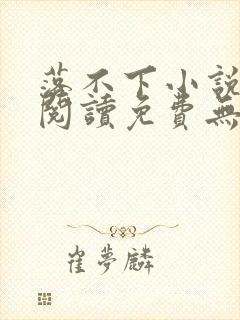 落不下小說
閱讀免費無
崔夢麟